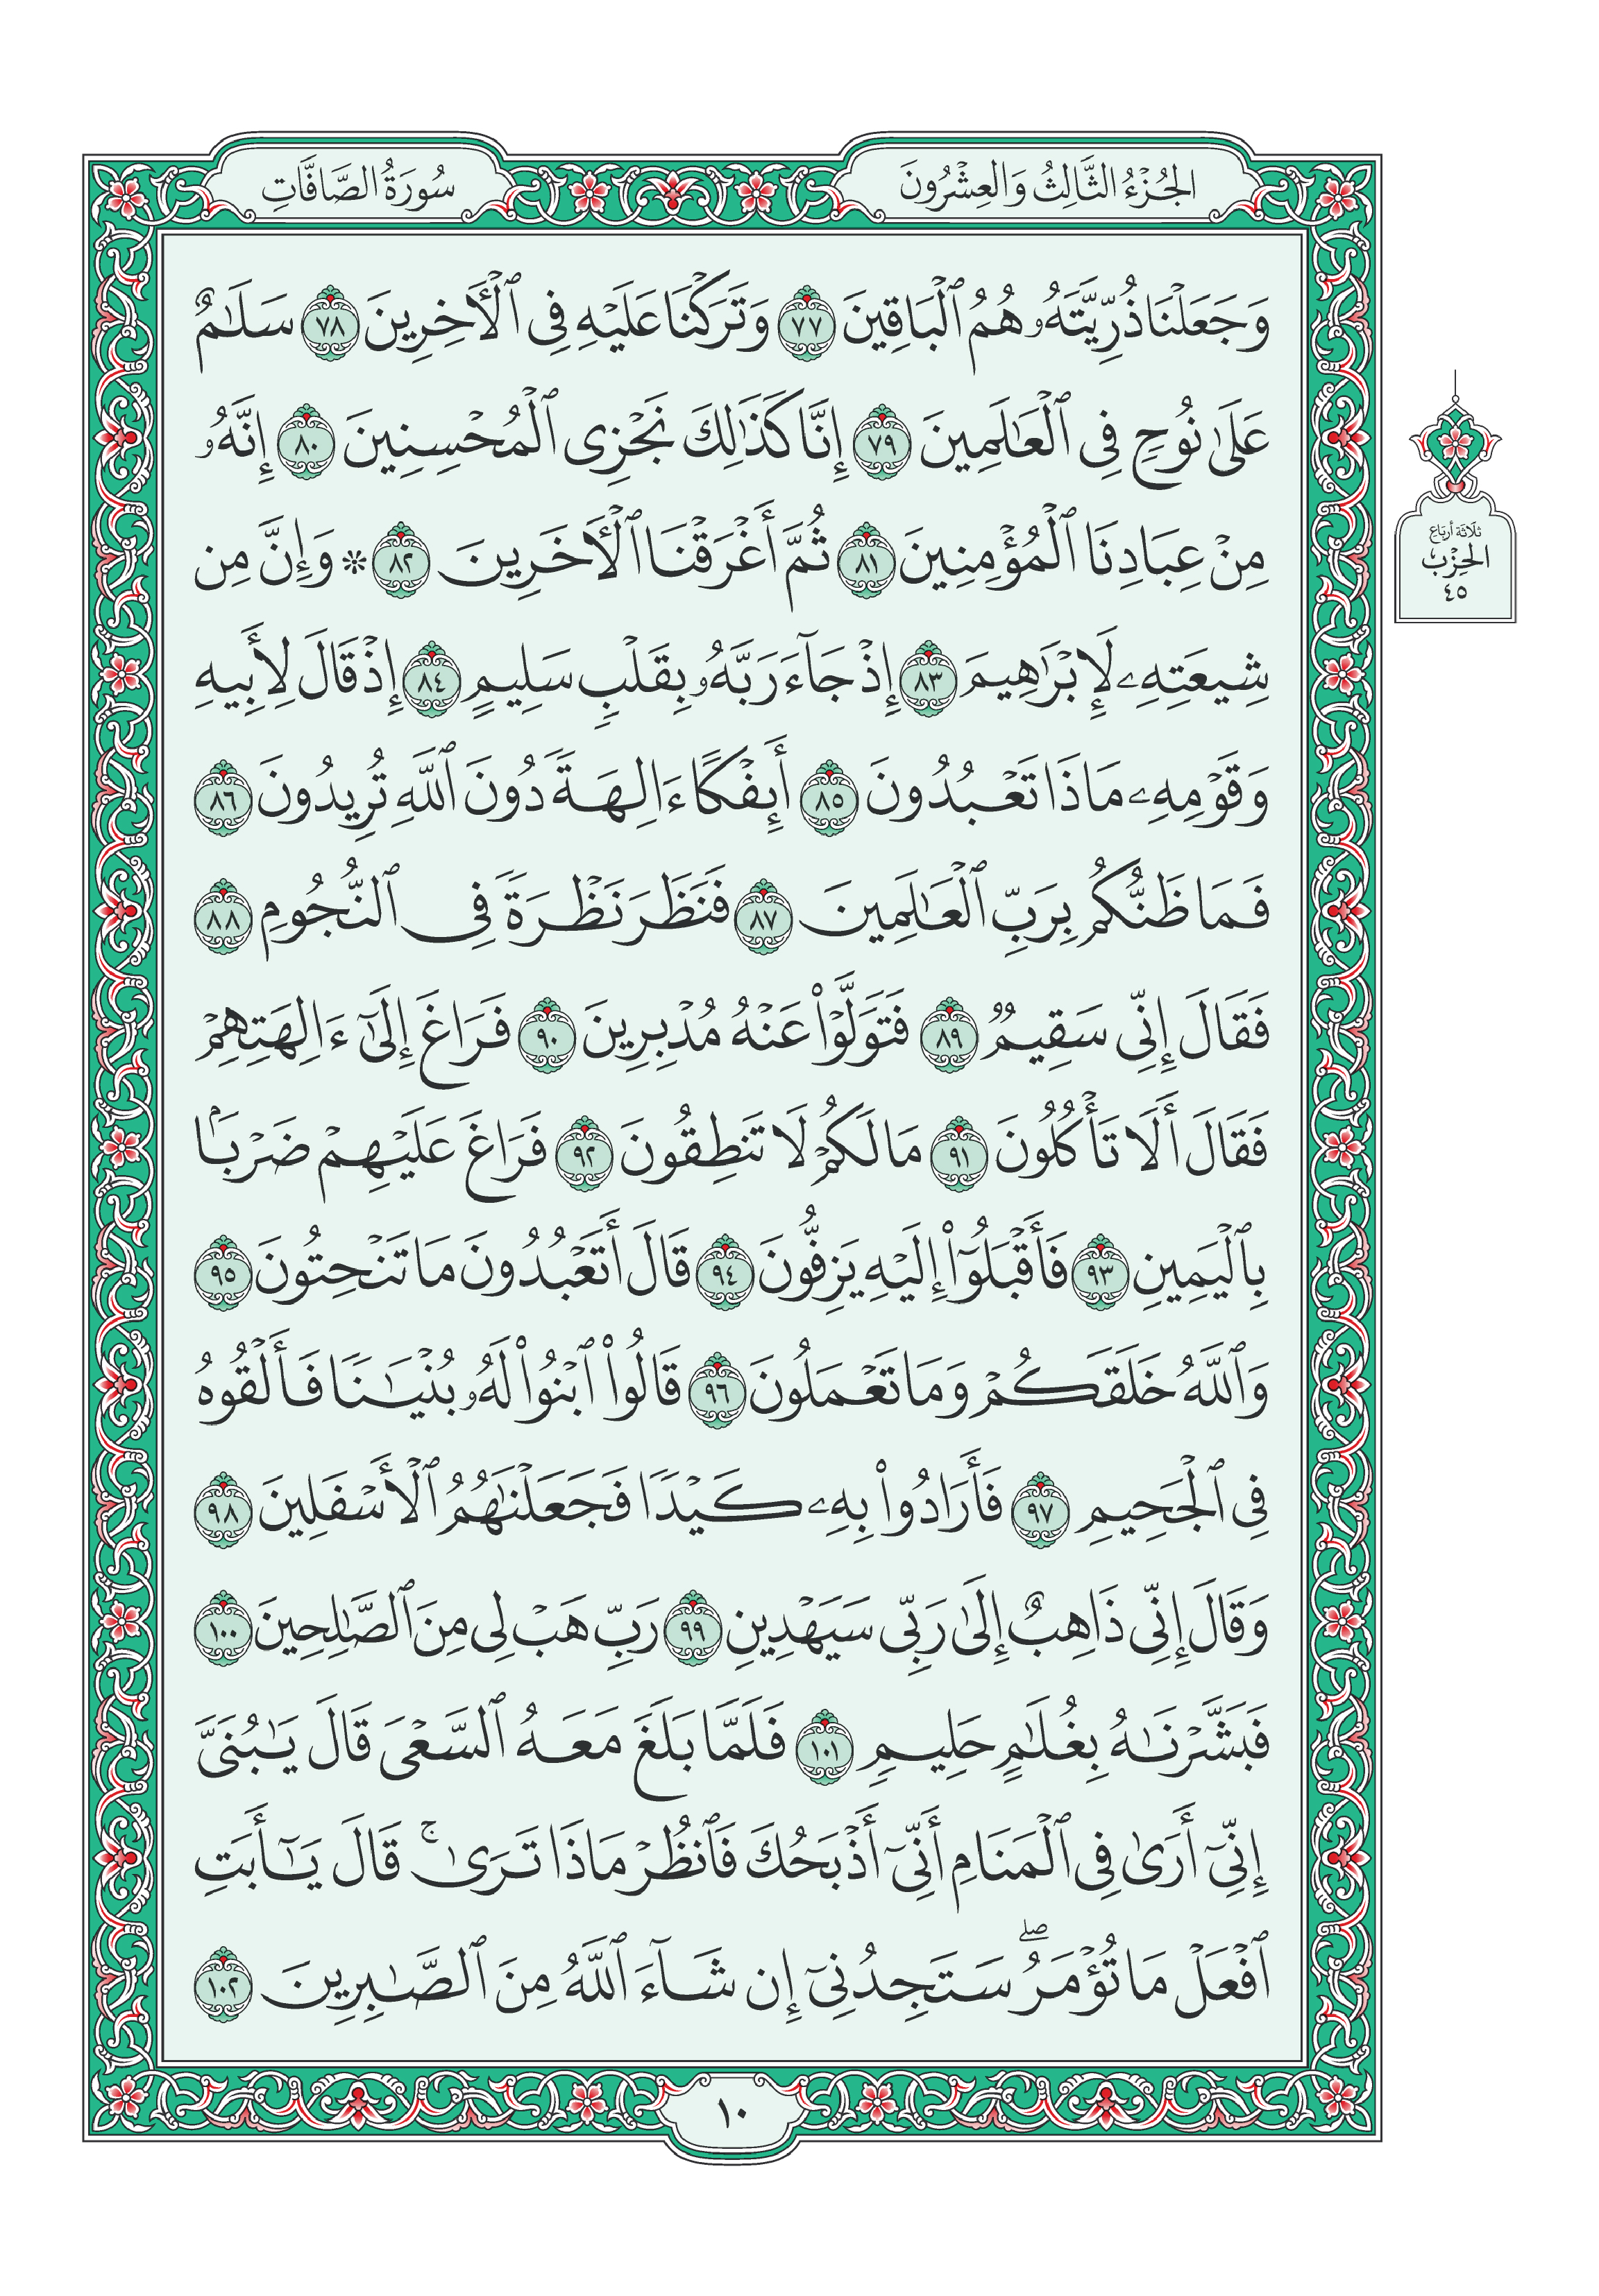 الجُزْءُ الثَّالِثُ وَالعِشْرُونَ
سُورَةُ الصَّافَّاتِ
وَجَعَلْنَا ذُرِّيَّتَهُۥ هُمُ ٱلْبَاقِينَ ٧٧ وَتَرَكْنَا عَلَيْهِ فِى ٱلْأٓخِرِينَ ٧٨ سَلَٰمٌ
عَلَىٰ نُوحٍ فِى ٱلْعَٰلَمِينَ ٧٩ إِنَّا كَذَٰلِكَ نَجْزِى ٱلْمُحْسِنِينَ ٨٠ إِنَّهُۥ
مِنْ عِبَادِنَا ٱلْمُؤْمِنِينَ ٨١ ثُمَّ أَغْرَقْنَا ٱلْأٓخَرِينَ ٨٢ * وَإِنَّ مِن
شِيعَتِهِۦ لَإِبْرَٰهِيمَ ٨٣ إِذْ جَآءَ رَبَّهُۥ بِقَلْبٍ سَلِيمٍ ٨٤ إِذْ قَالَ لِأَبِيهِ
وَقَوْمِهِۦ مَاذَا تَعْبُدُونَ ٨٥ أَئِفْكًا ءَالِهَةً دُونَ ٱللَّهِ تُرِيدُونَ ٨٦
فَمَا ظَنُّكُم بِرَبِّ ٱلْعَٰلَمِينَ ٨٧ فَنَظَرَ نَظْرَةً فِى ٱلنُّجُومِ ٨٨
فَقَالَ إِنِّى سَقِيمٌ ٨٩ فَتَوَلَّوْا۟ عَنْهُ مُدْبِرِينَ ٩٠ فَرَاغَ إِلَىٰٓ ءَالِهَتِهِمْ
فَقَالَ أَلَا تَأْكُلُونَ ٩١ مَا لَكُمْ لَا تَنطِقُونَ ٩٢ فَرَاغَ عَلَيْهِمْ ضَرْبًۢا
بِٱلْيَمِينِ ٩٣ فَأَقْبَلُوٓا۟ إِلَيْهِ يَزِفُّونَ ٩٤ قَالَ أَتَعْبُدُونَ مَا تَنْحِتُونَ ٩٥
وَٱللَّهُ خَلَقَكُمْ وَمَا تَعْمَلُونَ ٩٦ قَالُوا۟ ٱبْنُوا۟ لَهُۥ بُنْيَٰنًا فَأَلْقُوهُ
فِى ٱلْجَحِيمِ ٩٧ فَأَرَادُوا۟ بِهِۦ كَيْدًا فَجَعَلْنَٰهُمُ ٱلْأَسْفَلِينَ ٩٨
وَقَالَ إِنِّى ذَاهِبٌ إِلَىٰ رَبِّى سَيَهْدِينِ ٩٩ رَبِّ هَبْ لِى مِنَ ٱلصَّٰلِحِينَ ١٠٠
فَبَشَّرْنَٰهُ بِغُلَٰمٍ حَلِيمٍ ١٠١ فَلَمَّا بَلَغَ مَعَهُ ٱلسَّعْىَ قَالَ يَٰبُنَىَّ
إِنِّىٓ أَرَىٰ فِى ٱلْمَنَامِ أَنِّىٓ أَذْبَحُكَ فَٱنظُرْ مَاذَا تَرَىٰ ۚ قَالَ يَٰٓأَبَتِ
ٱفْعَلْ مَا تُؤْمَرُ ۖ سَتَجِدُنِىٓ إِن شَآءَ ٱللَّهُ مِنَ ٱلصَّٰبِرِينَ ١٠٢
ثلاثة أرباع
الحِزْب
٤٥
١٠